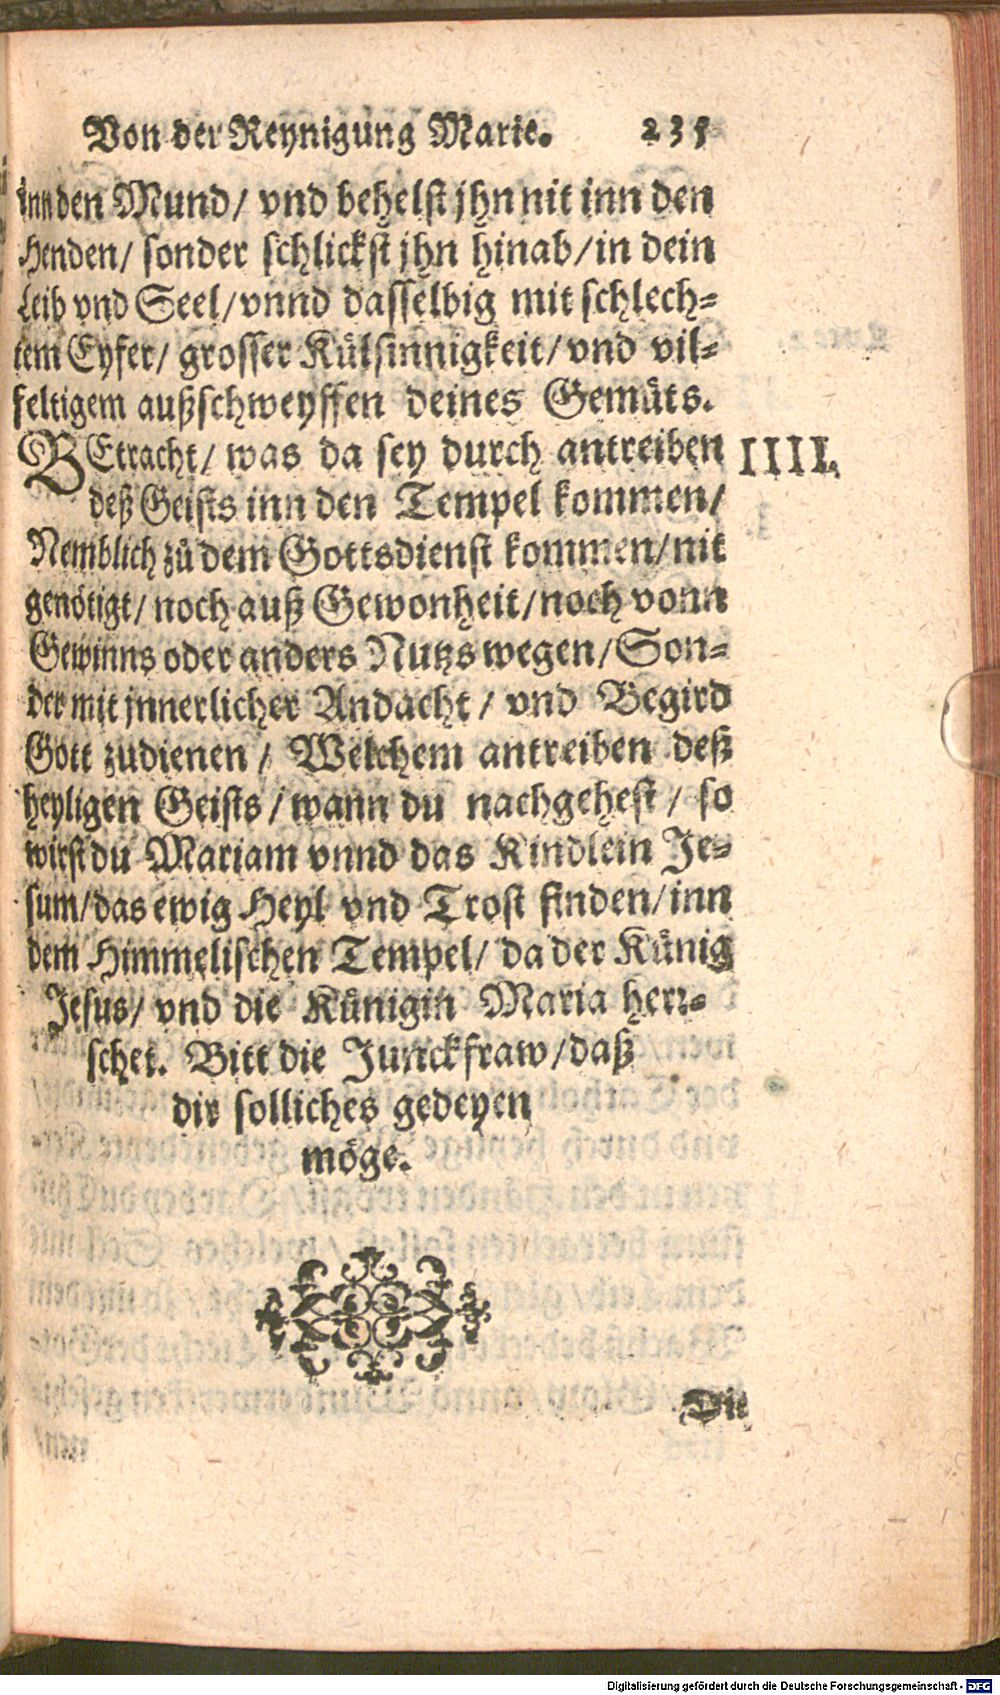 Von der Reynigung Marie. 235
inn den Mund/ vnd behelst jhn nit inn den
Henden/ sonder schlickst jhn hinab/ in dein
Leib vnd Seel/ vnnd dasselbig mit schlech=
tem Eyfer/ grosser Külsinnigkeit/ vnd vil=
feltigem außschweyffen deines Gemüts.
BEtracht/ was da sey durch antreiben IIII.
deß Geists inn den Tempel kommen/
Nemblich zů dem Gottsdienst kommen/ nit
genötigt/ noch auß Gewonheit/ noch vonn
Gewinns oder anders Nutzs wegen/ Son=
der mit jnnerlicher Andacht/ vnd Begird
Gott zudienen/ Welchem antreiben deß
heyligen Geists/ wann du nachgehest/ so
wirst du Mariam vnnd das Kindlein Je=
sum/ das ewig Heyl vnd Trost finden/ inn
dem Himmelischen Tempel/ da der Künig
Jesus/ vnd die Künigin Maria herr=
schet. Bitt die Junckfraw/ daß
dir solliches gedeyen
möge.
Die
Digitalisierung gefördert durch die Deutsche Forschungsgemeinschaft - DFG